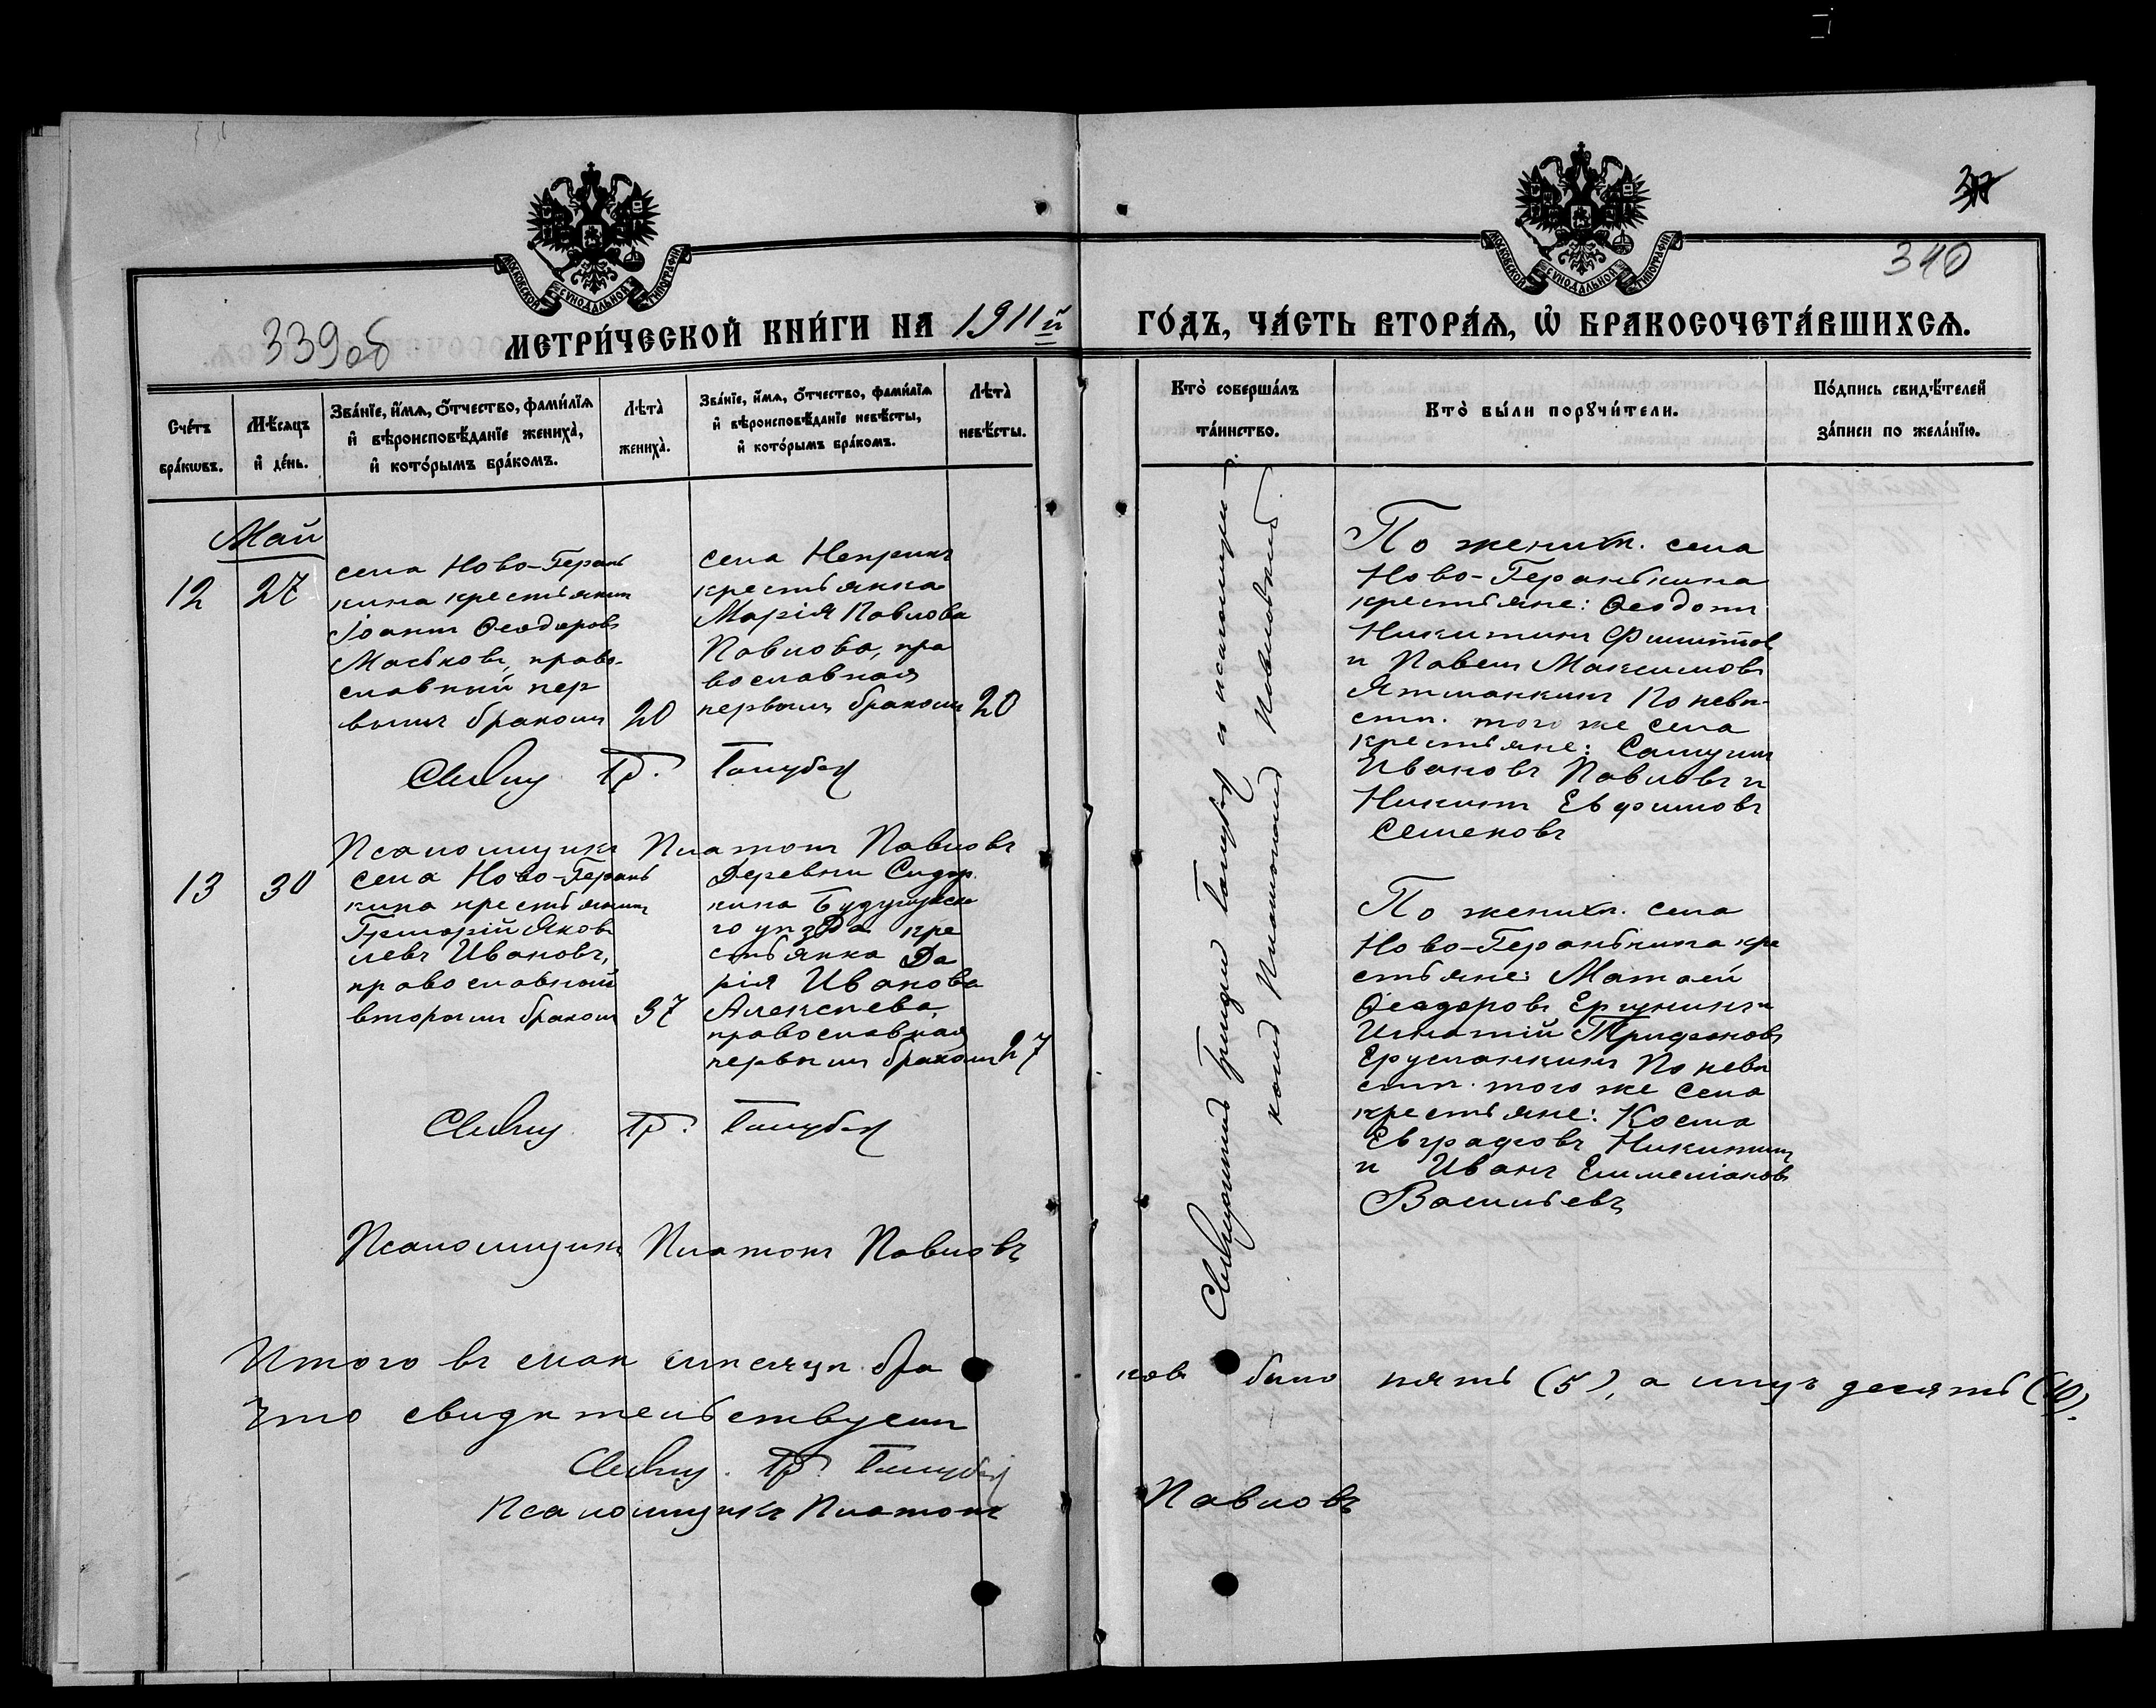 37
340
339об
МОСКОВСКОЙ СУНОДАЛЬНОЙ ТИПОГРАФІИ
МОСКОВСКОЙ СУНОДАЛЬНОЙ ТИПОГРАФІИ
МЕТРИ́ЧЕСКОЙ КНИ́ГИ НА 1911й ГО́ДЪ, ЧА́СТЬ ВТОРА́Я, Ѽ БРАКОСОЧЕТА́ВШИХСЯ.
Сче́тъ
бра́кѡвъ.
Мѣ́сяцъ
и҆ де́нь.
Зва́нїе, и҆́мя, ѻ҆́тчество, фамилїя
и҆ вѣроисповѣ́данїе жениха̀,
и҆ кото́рымъ бра́комъ.
Лѣта̀
жениха̀.
Зва́нїе, и҆́мя, ѻ҆́тчество, фами́лїя
и҆ вѣроисповѣ́данїе невѣ́сты,
и҆ кото́рымъ бра́комъ.
Лѣта̀
невѣ́сты.
Кто̀ соверша́лъ
та́инство.
Кто̀ бы́ли порꙋчи́тели.
По́дпись свидѣ́телей
за́писи по жела́нїю.
Май
12
27
села Ново-Герань
кина крестьянинъ
Іоаннъ Ѳеодоровъ
Маськовъ, право-
славный пер
вымъ бракомъ
20
села Непримъ
крестьянка
Марія Павлова
Павлова, пра
вославная
первымъ бракомъ
20
Священникъ Григорій Голубевъ и псаломщикъ
Платонъ Павловъ
По женихѣ. села
Ново-Геранькина
крестьяне: Ѳеодотъ
Никитинъ Филиппов
и Павелъ Максимовъ
Ятманкинъ По невѣ-
стѣ. того же села
крестьяне: Самуилъ
Ивановъ Павловъ и
Никита Евфимовъ
Семеновъ
Свящ. Гр. Голубев
Псаломщикъ Платонъ Павловъ
13
30
села Ново-Герань
кина крестьянинъ
Григорій Яков
левъ Ивановъ,
православный
вторымъ бракомъ
37
Деревни Сидор
кина Бугурусла
го уѣзда кре
стьянка Да
рія Иванова
Алексѣева,
православная
первымъ бракомъ
27
По женихѣ. села
Ново-Геранькина кре
стьяне: Матѳей
Ѳеодоровъ Ергунинъ и
Игнатій Трифоновъ
Ерусланкинъ По невѣ
стѣ. того же села
крестьяне: Косма
Евграфовъ Никитинъ
и Иванъ Емиліановъ
Васильевъ
Свящ. Гр. Голубев
Псаломщикъ Платонъ Павловъ
Итого въ маѣ мѣсяцѣ бра ковъ было пять (5), а лицъ десять (10).
Что свидѣтельствуемъ
Свящ. Гр. Голубев
Псаломщикъ Платонъ Павловъ